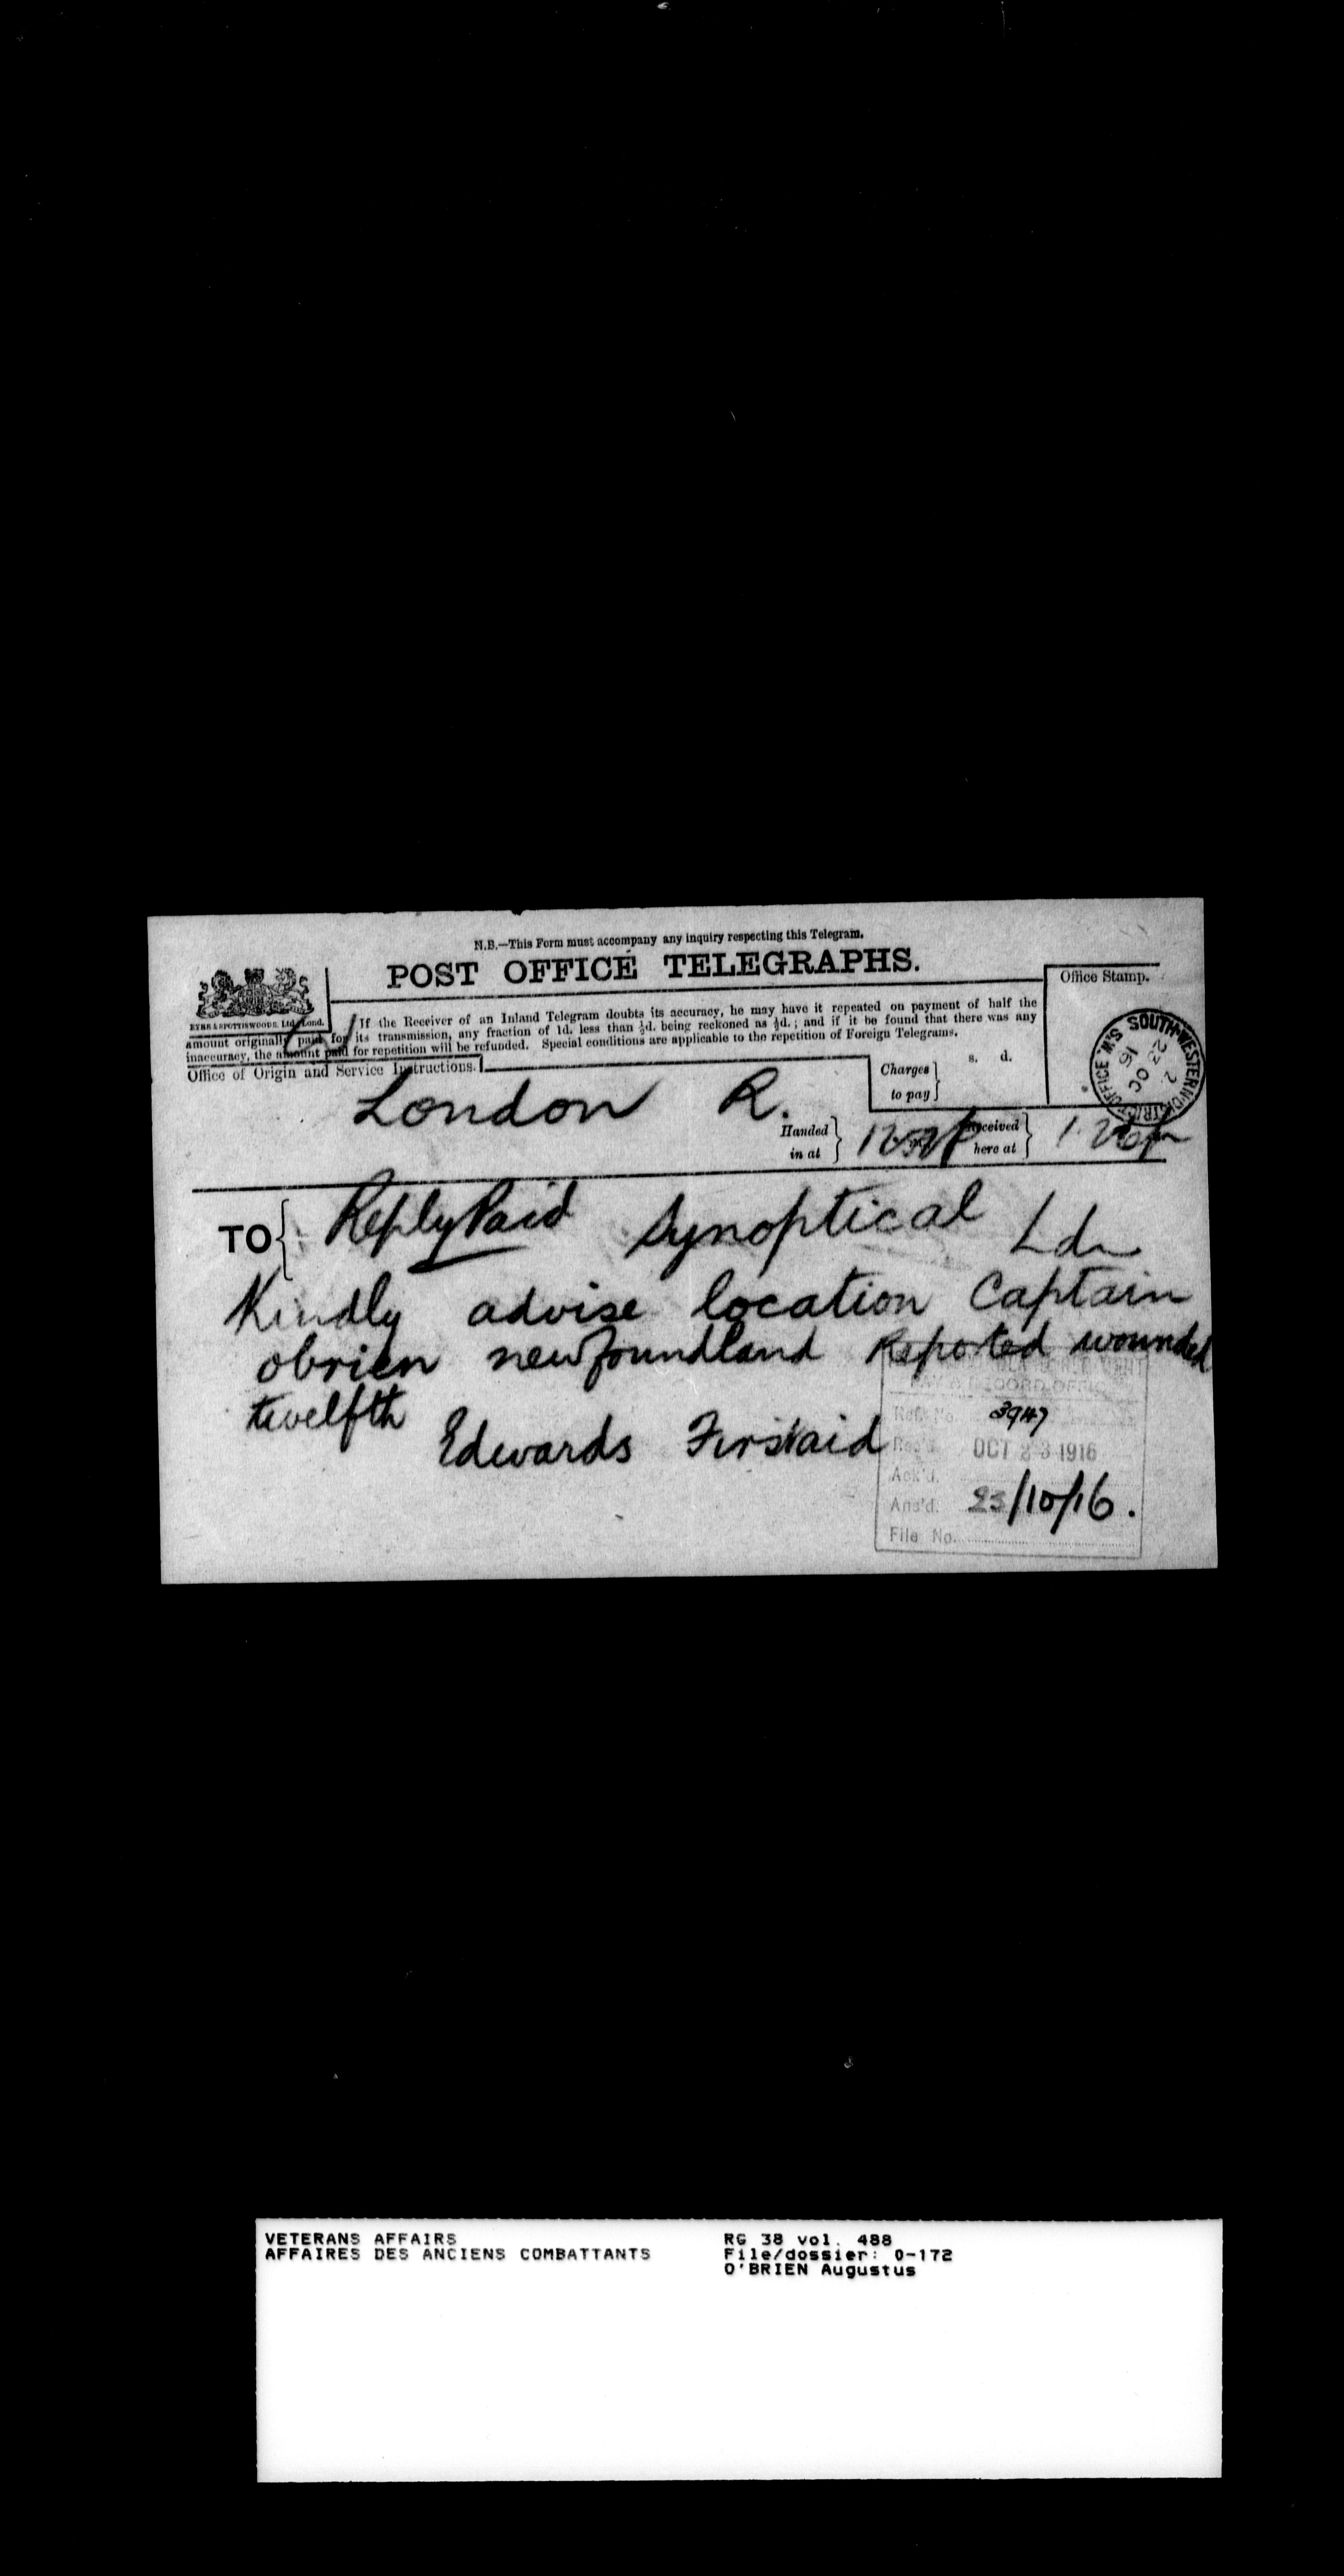 N.B.—This Form must accompany any inquiry respecting this Telegram.
POST OFFICE TELEGRAPHS.
Office Stamp.
EYRE & SPOTTISWOODE, Ltd, Lond.
If the Receiver of an Inland Telegram doubts its accuracy, he may have it repeated on payment of half the
amount originally paid for its transmission, any fraction of 1d. less than ½d. being reckoned as ½d.; and if it be found that there was any
inaccuracy, the amount paid for repetition will be refunded. Special conditions are applicable to the repetition of Foreign Telegrams.
SOUTH WESTERN DISTRICT OFFICE
2
23 OC
16
Office of Origin and Service Instructions.
Charges to pay
s. d.
London R.
Handed in at
Received here at
TO
Reply Paid Synoptical Ldn
Kindly advise location Captain
obrien newfoundland Reported wounded
twelfth
Edwards Firstaid
PAY & RECORD OFFICE
Ref. No. 3947
Rec'd. OCT 23 1916
Ack'd.
Ans'd. 23/10/16.
File No.
VETERANS AFFAIRS
AFFAIRES DES ANCIENS COMBATTANTS
RG 38 vol. 488
File/dossier: O-172
O'BRIEN Augustus